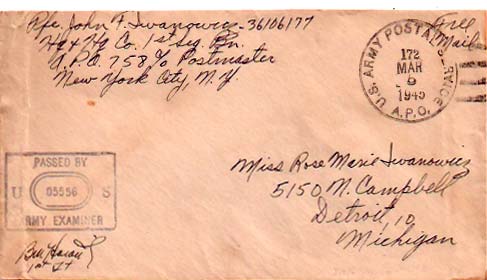 Pfc. John F. Iwanowicz - 36106177
Hq & Hq Co. 1st Sig. Bn.
A.P.O. 758 c/o Postmaster
New York City, N.Y.
Free
Mail
U.S. ARMY POSTAL SERVICE
172
MAR
1945
A.P.O.
PASSED BY
U 05556 S
ARMY EXAMINER
1st Lt
Miss Rose Marie Iwanowicz
5150 N. Campbell
Detroit, 10
Michigan